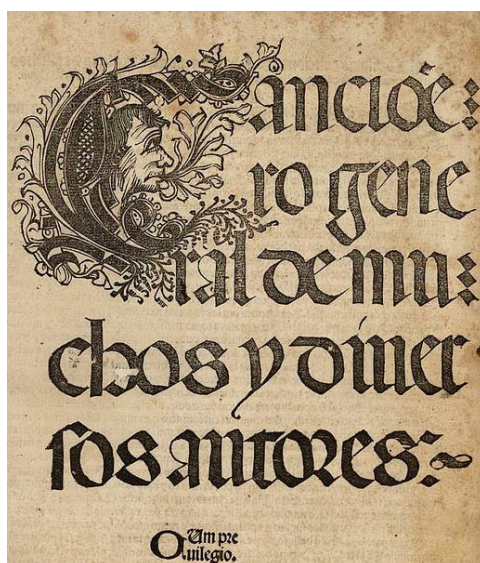 Cancioẽ:
ro gene
ral de mu:
chos y diuer
sos autores:~
CUm pre
uilegio.